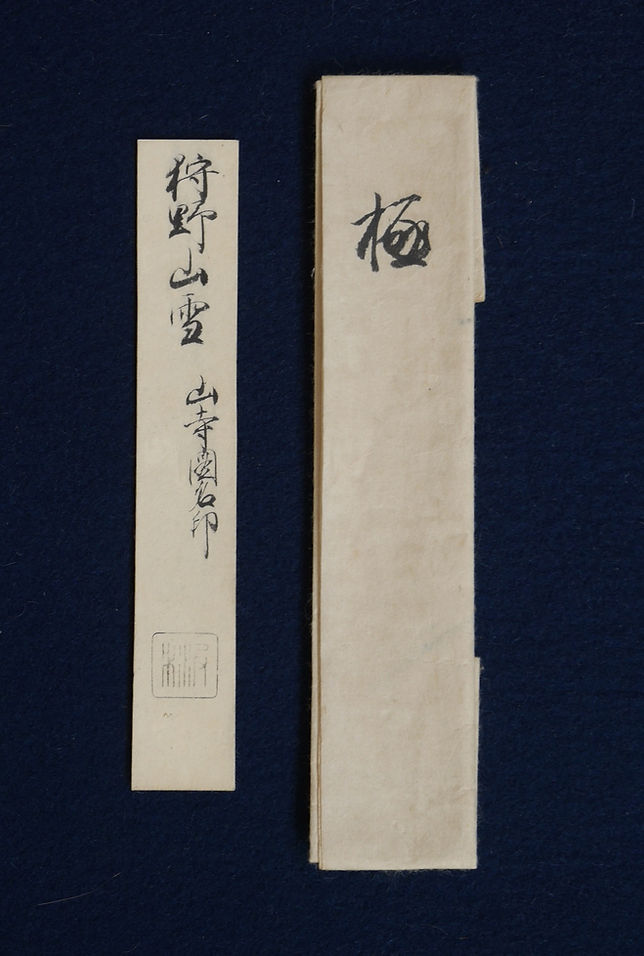 極
狩野山雪
山寺圖名印